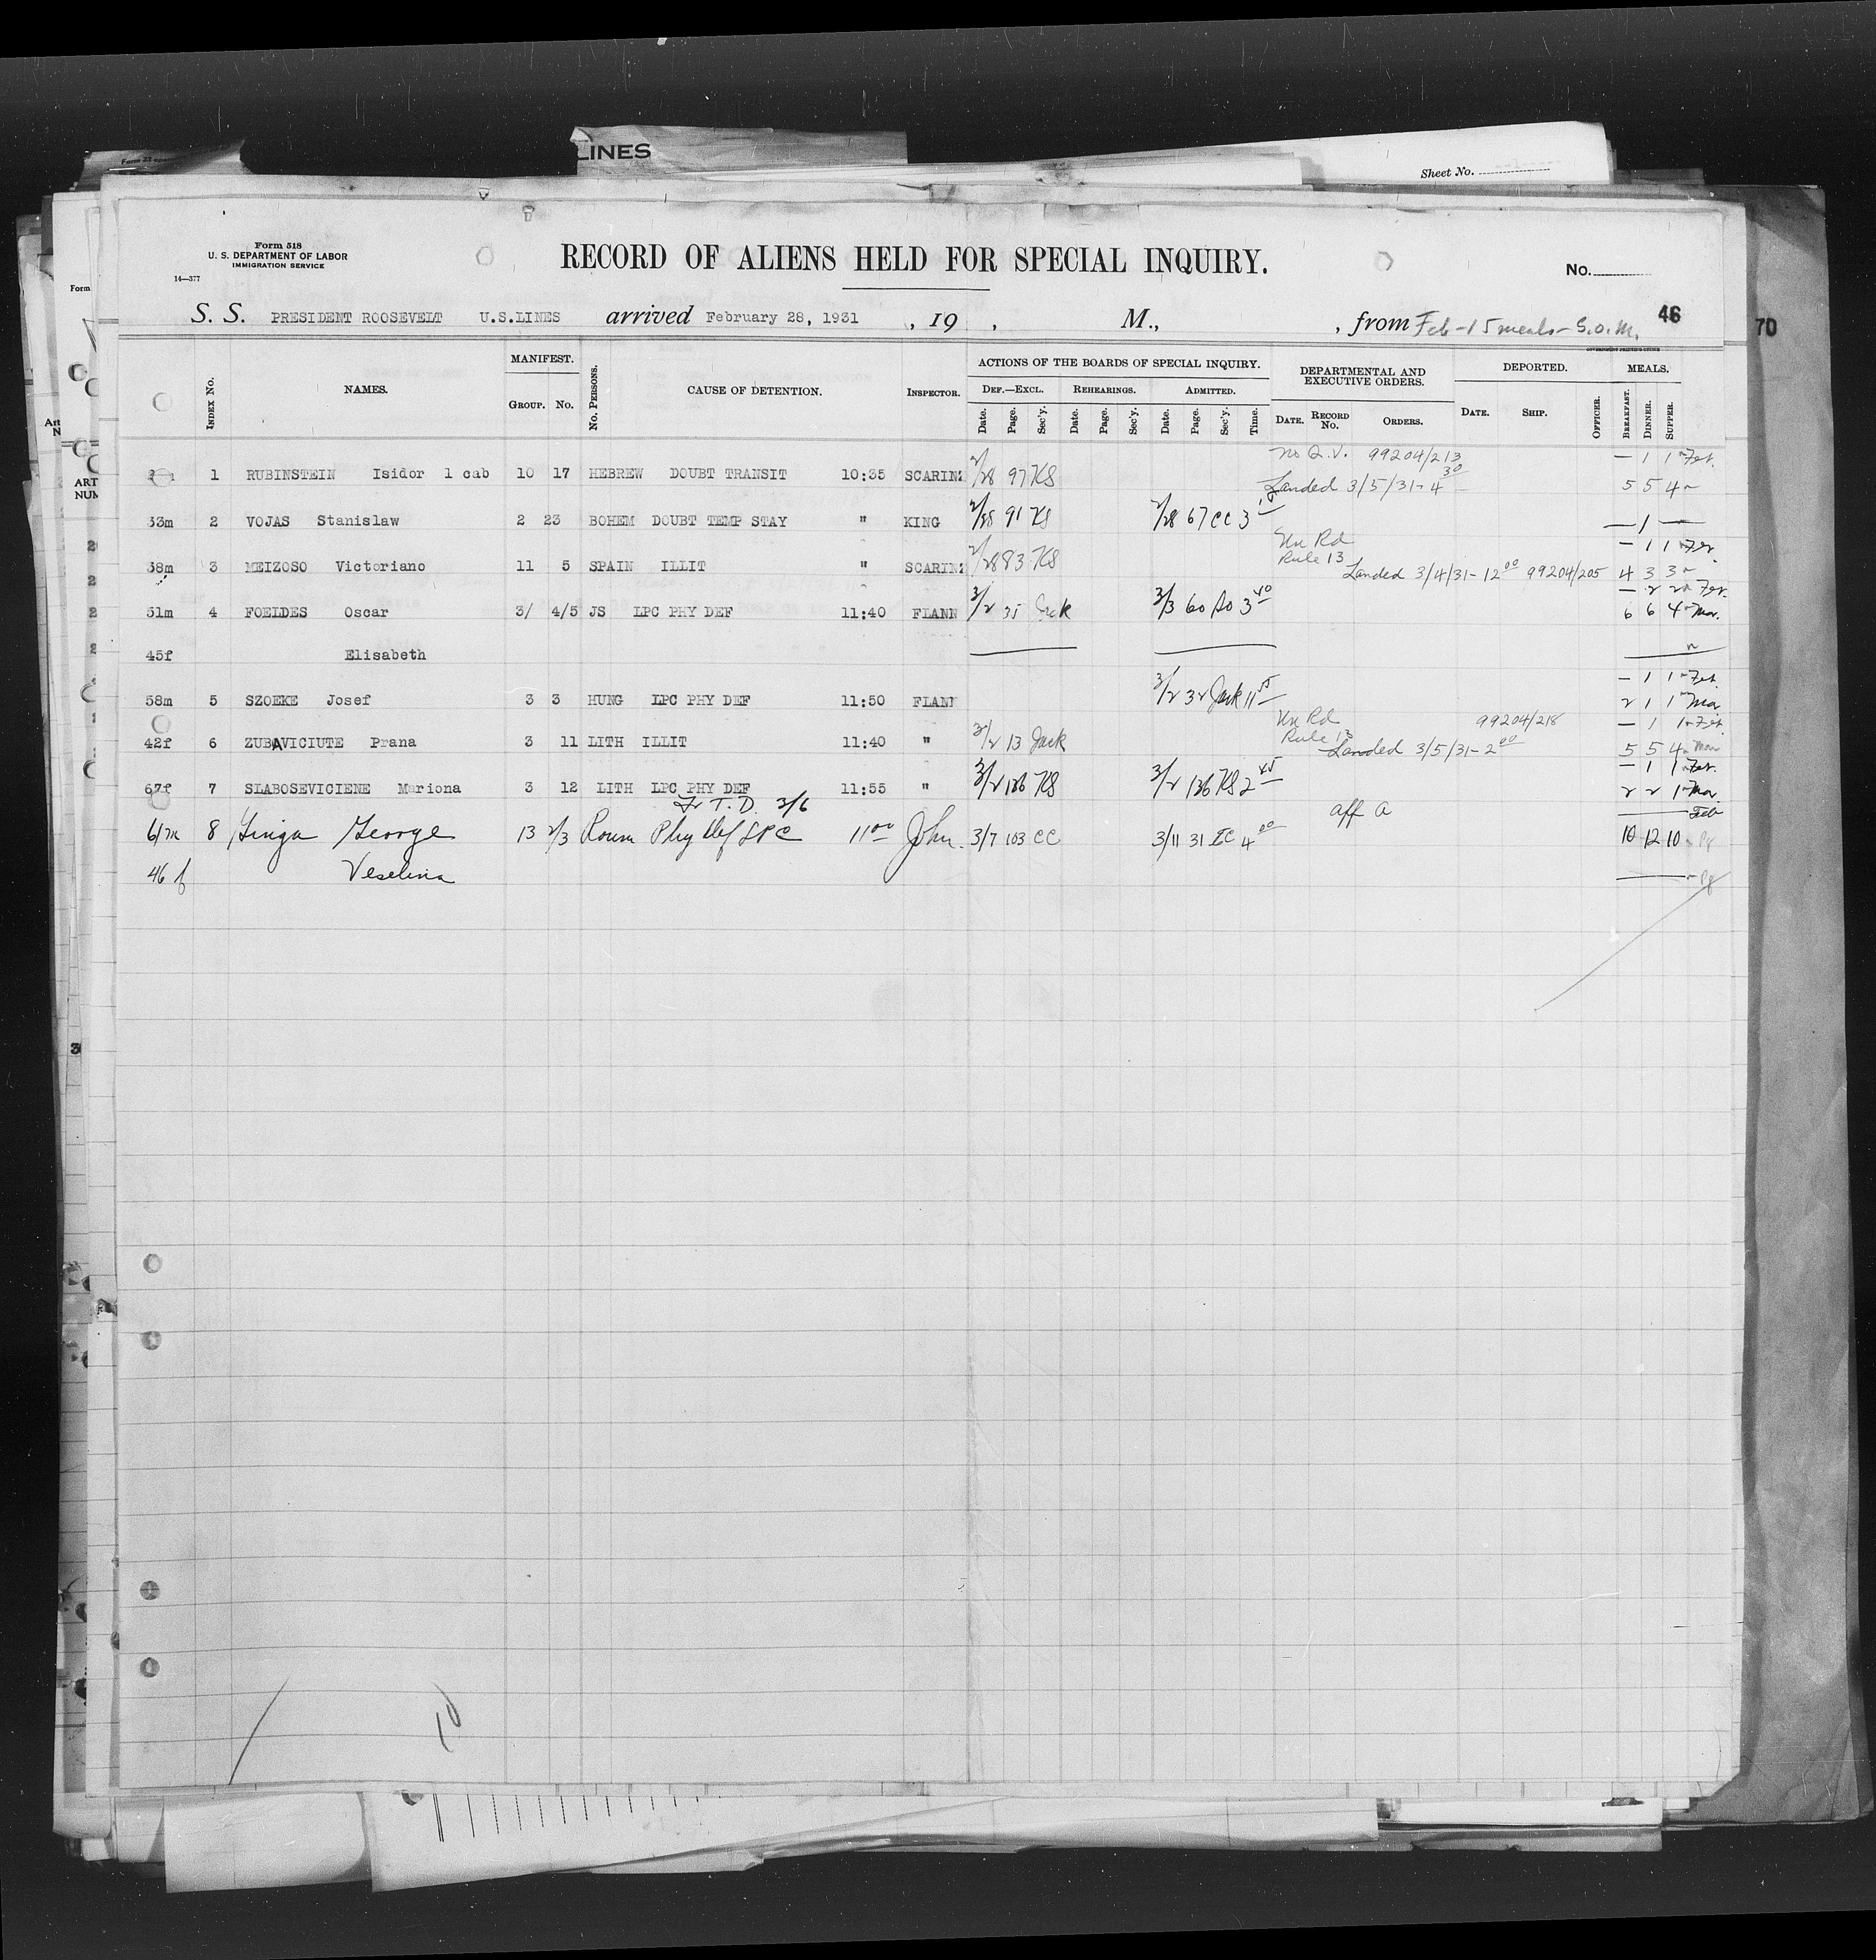 LINES
Sheet No.
Form 518
U. S. DEPARTMENT OF LABOR
IMMIGRATION SERVICE
14—377
RECORD OF ALIENS HELD FOR SPECIAL INQUIRY.
No.
S. S. PRESIDENT ROOSEVELT U.S.LINES arrived February 28, 1931 , 19 , M., , from Feb - 15 meals - S.O.M. 46
70
INDEX No. NAMES. MANIFEST. GROUP. No. No. PERSONS. CAUSE OF DETENTION. INSPECTOR. ACTIONS OF THE BOARDS OF SPECIAL INQUIRY. DEPARTMENTAL AND EXECUTIVE ORDERS. DEPORTED. MEALS.
DEF.—EXCL. REHEARINGS. ADMITTED.
Date. Page. Sec'y. Date. Page. Sec'y. Date. Page. Sec'y. Time. DATE. RECORD No. ORDERS. DATE. SHIP. OFFICER. BREAKFAST. DINNER. SUPPER.
No Q.V. 99204/213 — 1 1 Feb.
1 RUBINSTEIN Isidor 1 cab 10 17 HEBREW DOUBT TRANSIT 10:35 SCARINZ 2/28 97 KS Landed 3/5/31 - 4 30 5 5 4
33m 2 VOJAS Stanislaw 2 23 BOHEM DOUBT TEMP STAY " KING 2/28 91 KS 2/28 67 CC 3 — 1 —
Rule 13 — 1 1 Feb.
38m 3 MEIZOSO Victoriano 11 5 SPAIN ILLIT " SCARINZ 2/28 83 KS Landed 3/4/31 - 12 00 99204/205 4 3 3
— 2 2 Feb.
51m 4 FOELDES Oscar 3/ 4/5 JS LPC PHY DEF 11:40 FLANN 3/2 35 Jack 3/3 60 3 40 6 6 4 Mar.
45f Elisabeth
— 1 1 Feb.
58m 5 SZOEKE Josef 3 3 HUNG LPC PHY DEF 11:50 FLANN 3/2 32 Jack 11 55 2 1 1 Mar
99204/218 — 1 1 Feb.
42f 6 ZUBAVICIUTE Prana 3 11 LITH ILLIT 11:40 " 3/2 13 Jack Rule 13 Landed 3/5/31 - 2 00 5 5 4 Mar
— 1 1 Feb.
67f 7 SLABOSEVICIENE Mariona 3 12 LITH LPC PHY DEF 11:55 " 3/2 136 KS 3/2 136 KS 2 45 2 2 1 Mar
Fr T.D. 3/6 aff a Feb
61m 8 George 13 2/3 Roum Phy Def LPC 11 00 John. 3/7 103 CC 3/11 31 EC 4 00 10 12 10
46 f Veselina